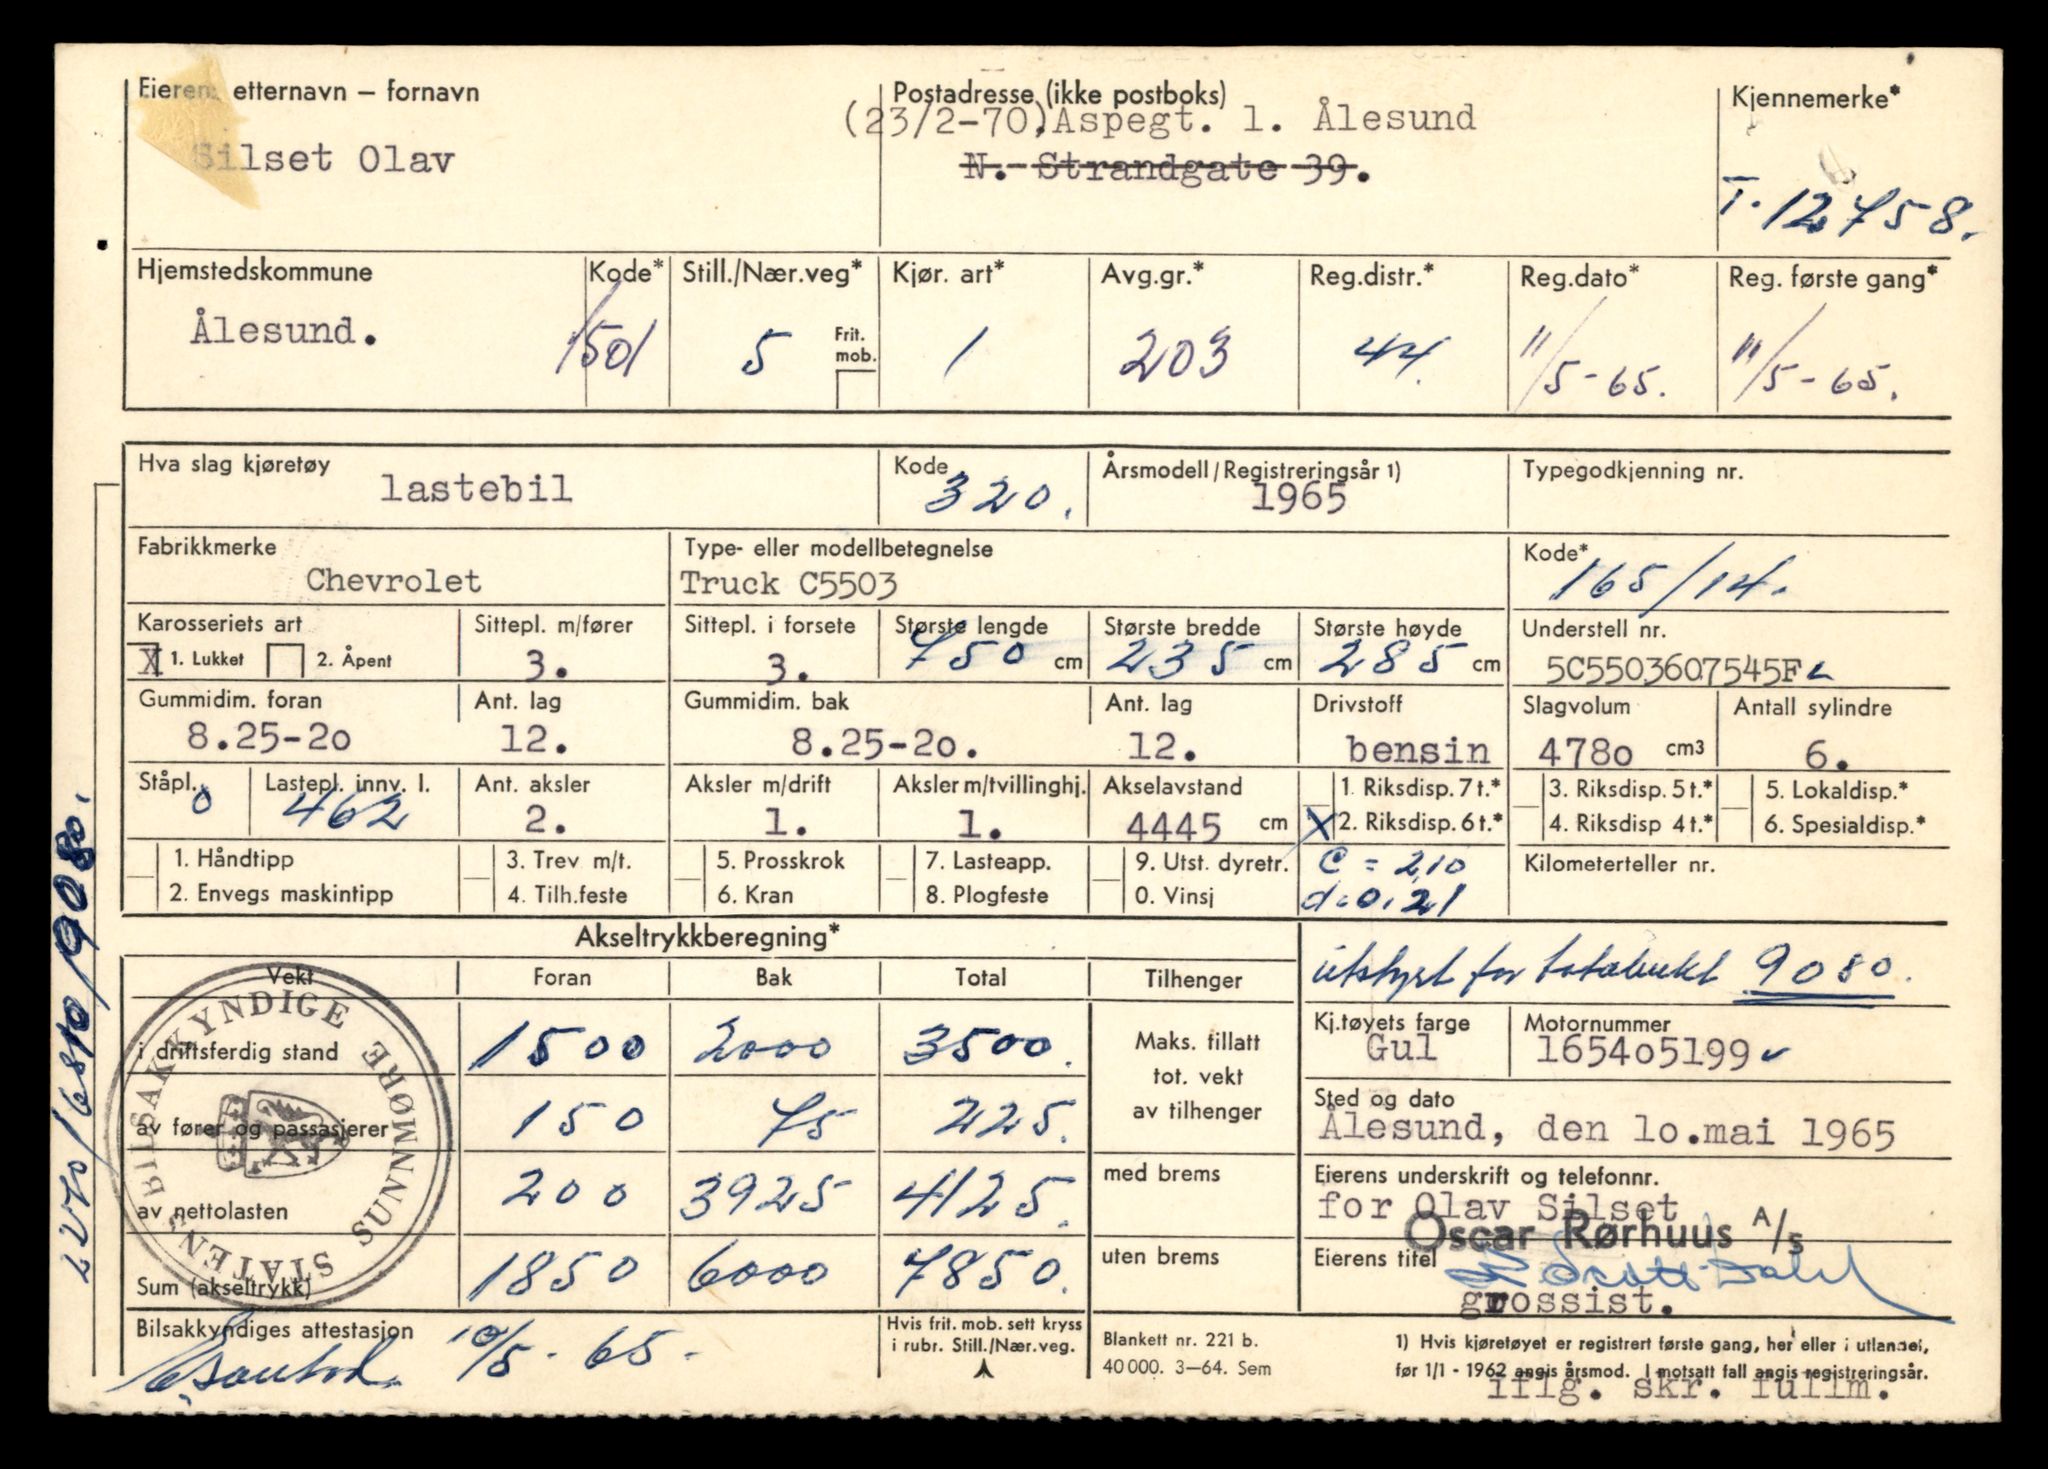 Eierens etternavn – fornavn
Silset Olav
Postadresse (ikke postboks)
(23/2-70).Aspegt. 1. Ålesund
N. Strandgate 39.
Kjennemerke*
T-12758.
Hjemstedskommune
Ålesund.
Kode*
1501
Still./Nær.veg*
5
Frit. mob.
Kjør. art*
1
Avg.gr.*
203
Reg.distr.*
44.
Reg.dato*
11/5-65.
Reg. første gang*
11/5-65.
Hva slag kjøretøy
lastebil
Kode
320.
Årsmodell/Registreringsår 1)
1965
Typegodkjenning nr.
Fabrikkmerke
Chevrolet
Type- eller modellbetegnelse
Truck C5503
Kode*
165/14.
Karosseriets art
X 1. Lukket 2. Åpent
Sittepl. m/fører
3.
Sittepl. i forsete
3.
Største lengde
750 cm
Største bredde
235 cm
Største høyde
285 cm
Understell nr.
5C5503607545F
Gummidim. foran
8.25-20
Ant. lag
12.
Gummidim. bak
8.25-20.
Ant. lag
12.
Drivstoff
bensin
Slagvolum
4780 cm3
Antall sylindre
6.
Ståpl.
0
Lastepl. innv. l.
462
Ant. aksler
2.
Aksler m/drift
1.
Aksler m/tvillinghj.
1.
Akselavstand
4445 cm
1. Riksdisp. 7 t.*
X 2. Riksdisp. 6 t.*
3. Riksdisp. 5 t.*
4. Riksdisp 4 t.*
5. Lokaldisp.*
6. Spesialdisp.*
1. Håndtipp
2. Envegs maskintipp
3. Trev m/t.
4. Tilh.feste
5. Prosskrok
6. Kran
7. Lasteapp.
8. Plogfeste
9. Utst. dyretr.
0. Vinsj
C = 2,10
d. 0,21
Kilometerteller nr.
Akseltrykkberegning*
Vekt Foran Bak Total Tilhenger
i driftsferdig stand 1500 2000 3500.
av fører og passasjerer 150 75 225.
av nettolasten 200 3925 4125.
Sum (akseltrykk) 1850 6000 7850.
Maks. tillatt
tot. vekt
av tilhenger
med brems
uten brems
STATENS BILSAKKYNDIGE SUNNMØRE
utstyrt for totalvekt 9080.
Kj.tøyets farge
Gul
Motornummer
165405199
Sted og dato
Ålesund, den 10.mai 1965
Eierens underskrift og telefonnr.
for Olav Silset
Oscar Rørhuus A/S
Eierens titel
grossist.
Bilsakkyndiges attestasjon
10/5-65.
Hvis frit. mob. sett kryss
i rubr. Still./Nær.veg.
Blankett nr. 221 b.
40 000. 3–64. Sem
1) Hvis kjøretøyet er registrert første gang, her eller i utlandet,
før 1/1 - 1962 angis årsmod. I motsatt fall angis registreringsår.
iflg. skr. fullm.